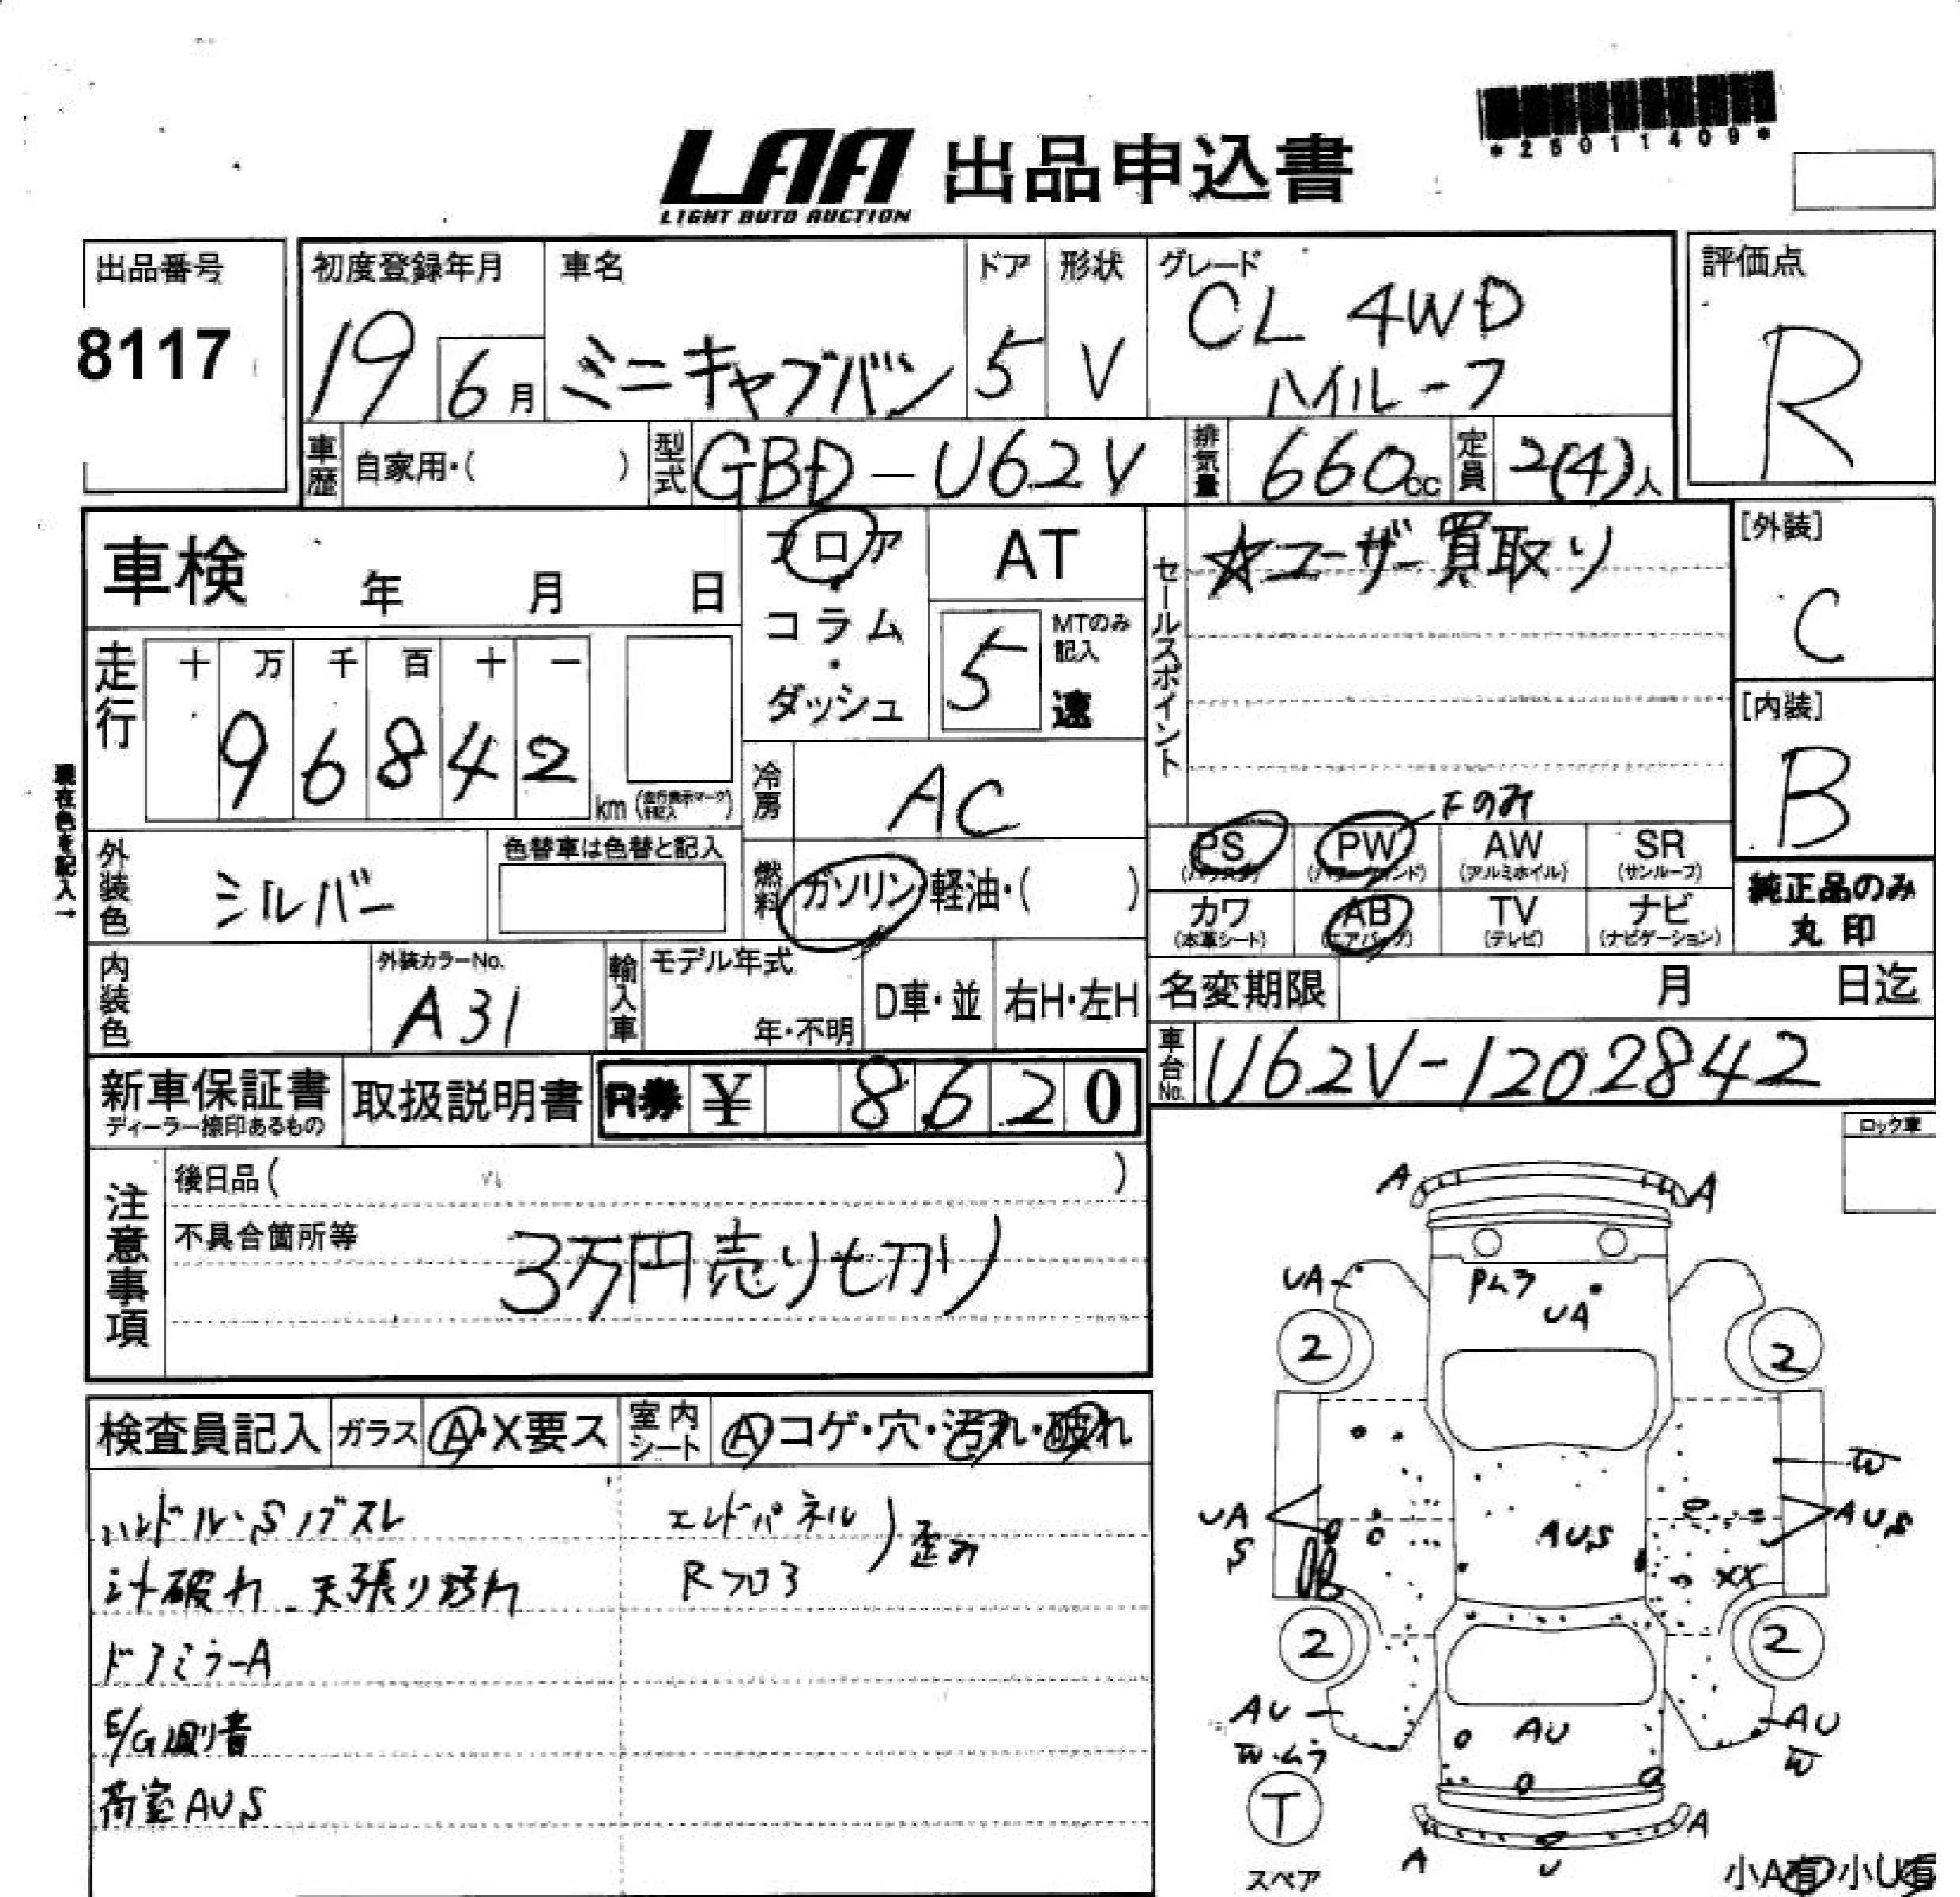 *25011409*
LAA 出品申込書
LIGHT AUTO AUCTION
出品番号
8117
初度登録年月
19 6月
車名
ミニキャブバン
ドア
5
形状
V
グレード
CL 4WD
ハイルーフ
評価点
R
車歴 自家用・( )
型式 GBD-U62V
排気量 660cc
定員 2(4)人
車検 年 月 日
フロア
コラム
・
ダッシュ
AT
5 MTのみ記入 速
セールスポイント
☆ユーザー買取り
[外装]
C
[内装]
B
走行
十 万 千 百 十 一
9 6 8 4 2 km
現在色を記入→
冷房 AC
Fのみ
PS PW AW SR
(パワステ) (パワーウインド) (アルミホイル) (サンルーフ)
カワ AB TV ナビ
(本革シート) (エアバッグ) (テレビ) (ナビゲーション)
純正品のみ
丸印
外装色 シルバー
色替車は色替と記入
燃料 ガソリン・軽油・( )
内装色
外装カラーNo.
A31
輸入車
モデル年式
年・不明
D車・並
右H・左H
名変期限 月 日迄
車台No. U62V-1202842
新車保証書
ディーラー捺印あるもの
取扱説明書
R券 ¥ 8620
ロック車
注意事項
後日品( )
不具合箇所等
3万円売り切り
検査員記入 ガラス A・X要ス 室内シート A コゲ・穴・汚れ・破れ
ハンドル・Sノブスレ
シート破れ 天張り汚れ
ドアミラーA
E/G周り音
荷室AUS
エンドパネル
Rフロア
歪み
A A
UA
Pムラ
UA
2 2
W
UA
S
AUS
AUS
XX
2 2
AU
W・ムラ
AU
AU
W
T
スペア
A U A
小A有・小U有